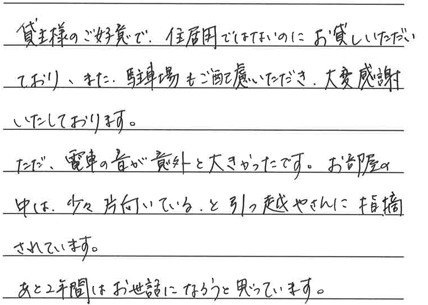 貸主様のご好意で、住居用ではないのにお貸しいただい
ており、また、駐車場もご配慮いただき、大変感謝
いたしております。
ただ、電車の音が意外と大きかったです。お部屋の
中は、少々片向いている、と引っ越やさんに指摘
されています。
あと2年間はお世話になろうと思っています。